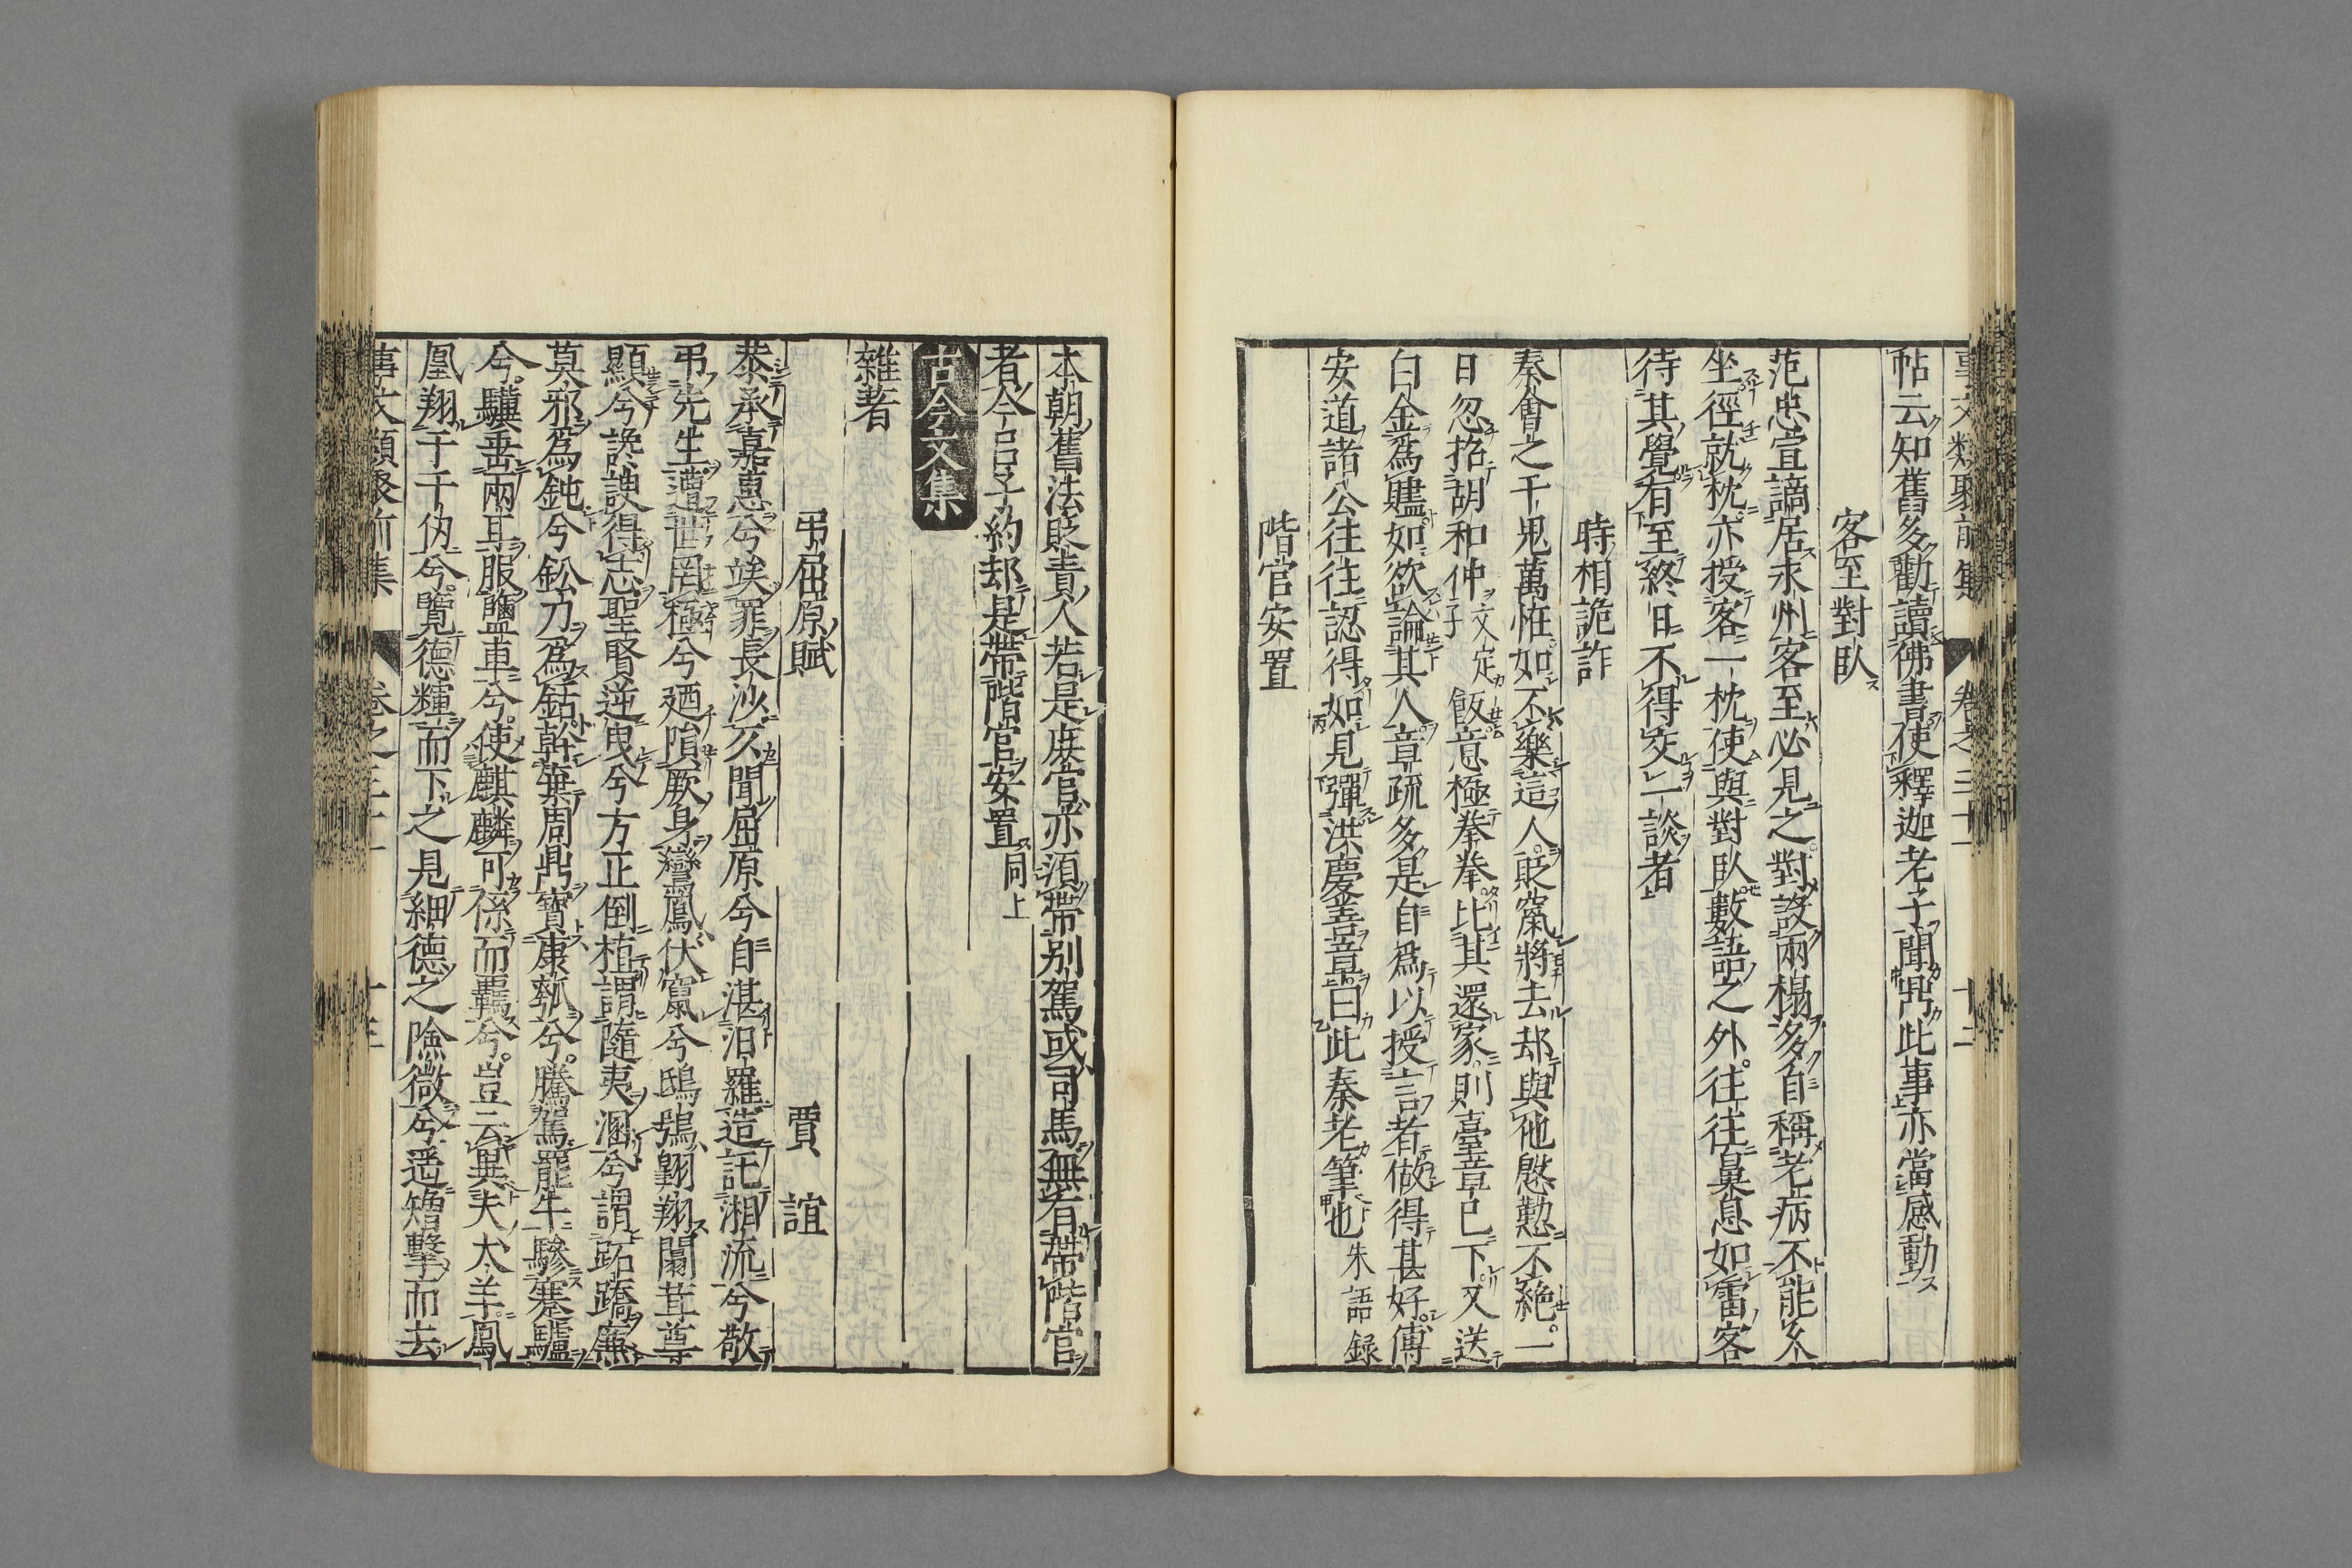 事文類聚前集 卷之三十一 十二
帖云知舊多勸讀佛書使釋迦老子聞此事亦當感動
客至對臥
范忠宣謫居永州客至必見之對設兩榻多自稱老病不能久
坐徑就枕亦授客一枕使與對臥數語之外往往鼻息如雷客
待其覺有至終日不得交一談者
時相詭詐
秦會之千鬼萬恠如不樂這人貶竄將去却與他慇懃不絶一
日忽招胡和仲文定子飯意極拳拳比其還家則臺章已下又送
白金爲贐如欲論其人章疏多是自爲以授言者做得甚好傅
安道諸公往往認得如見彈洪慶善章曰此秦老筆也朱語録
階官安置
本朝舊法貶責人若是庶官亦須帶别駕或司馬無有帶階官
者今呂子約却是帶階官安置同上
古今文集
雜著
弔屈原賦 賈誼
恭承嘉惠兮竢罪長沙仄聞屈原兮自湛汨羅造託湘流兮敬
弔先生遭世罔極兮廼隕厥身鸞鳳伏竄兮鴟鴞翱翔闒茸尊
顯兮讒諛得志聖賢逆曳兮方正倒植謂隨夷溷兮謂跖蹻廉
莫邪爲鈍兮鉛刀爲銛斡棄周鼎寶康瓠兮騰駕罷牛驂蹇驢
兮驥垂兩耳服鹽車兮使麒麟可係而羈兮豈云異夫犬羊鳳
凰翔于千仭兮覽德輝而下之見細德之險微兮遥矰擊而去
事文類聚前集 卷之三十一 十三